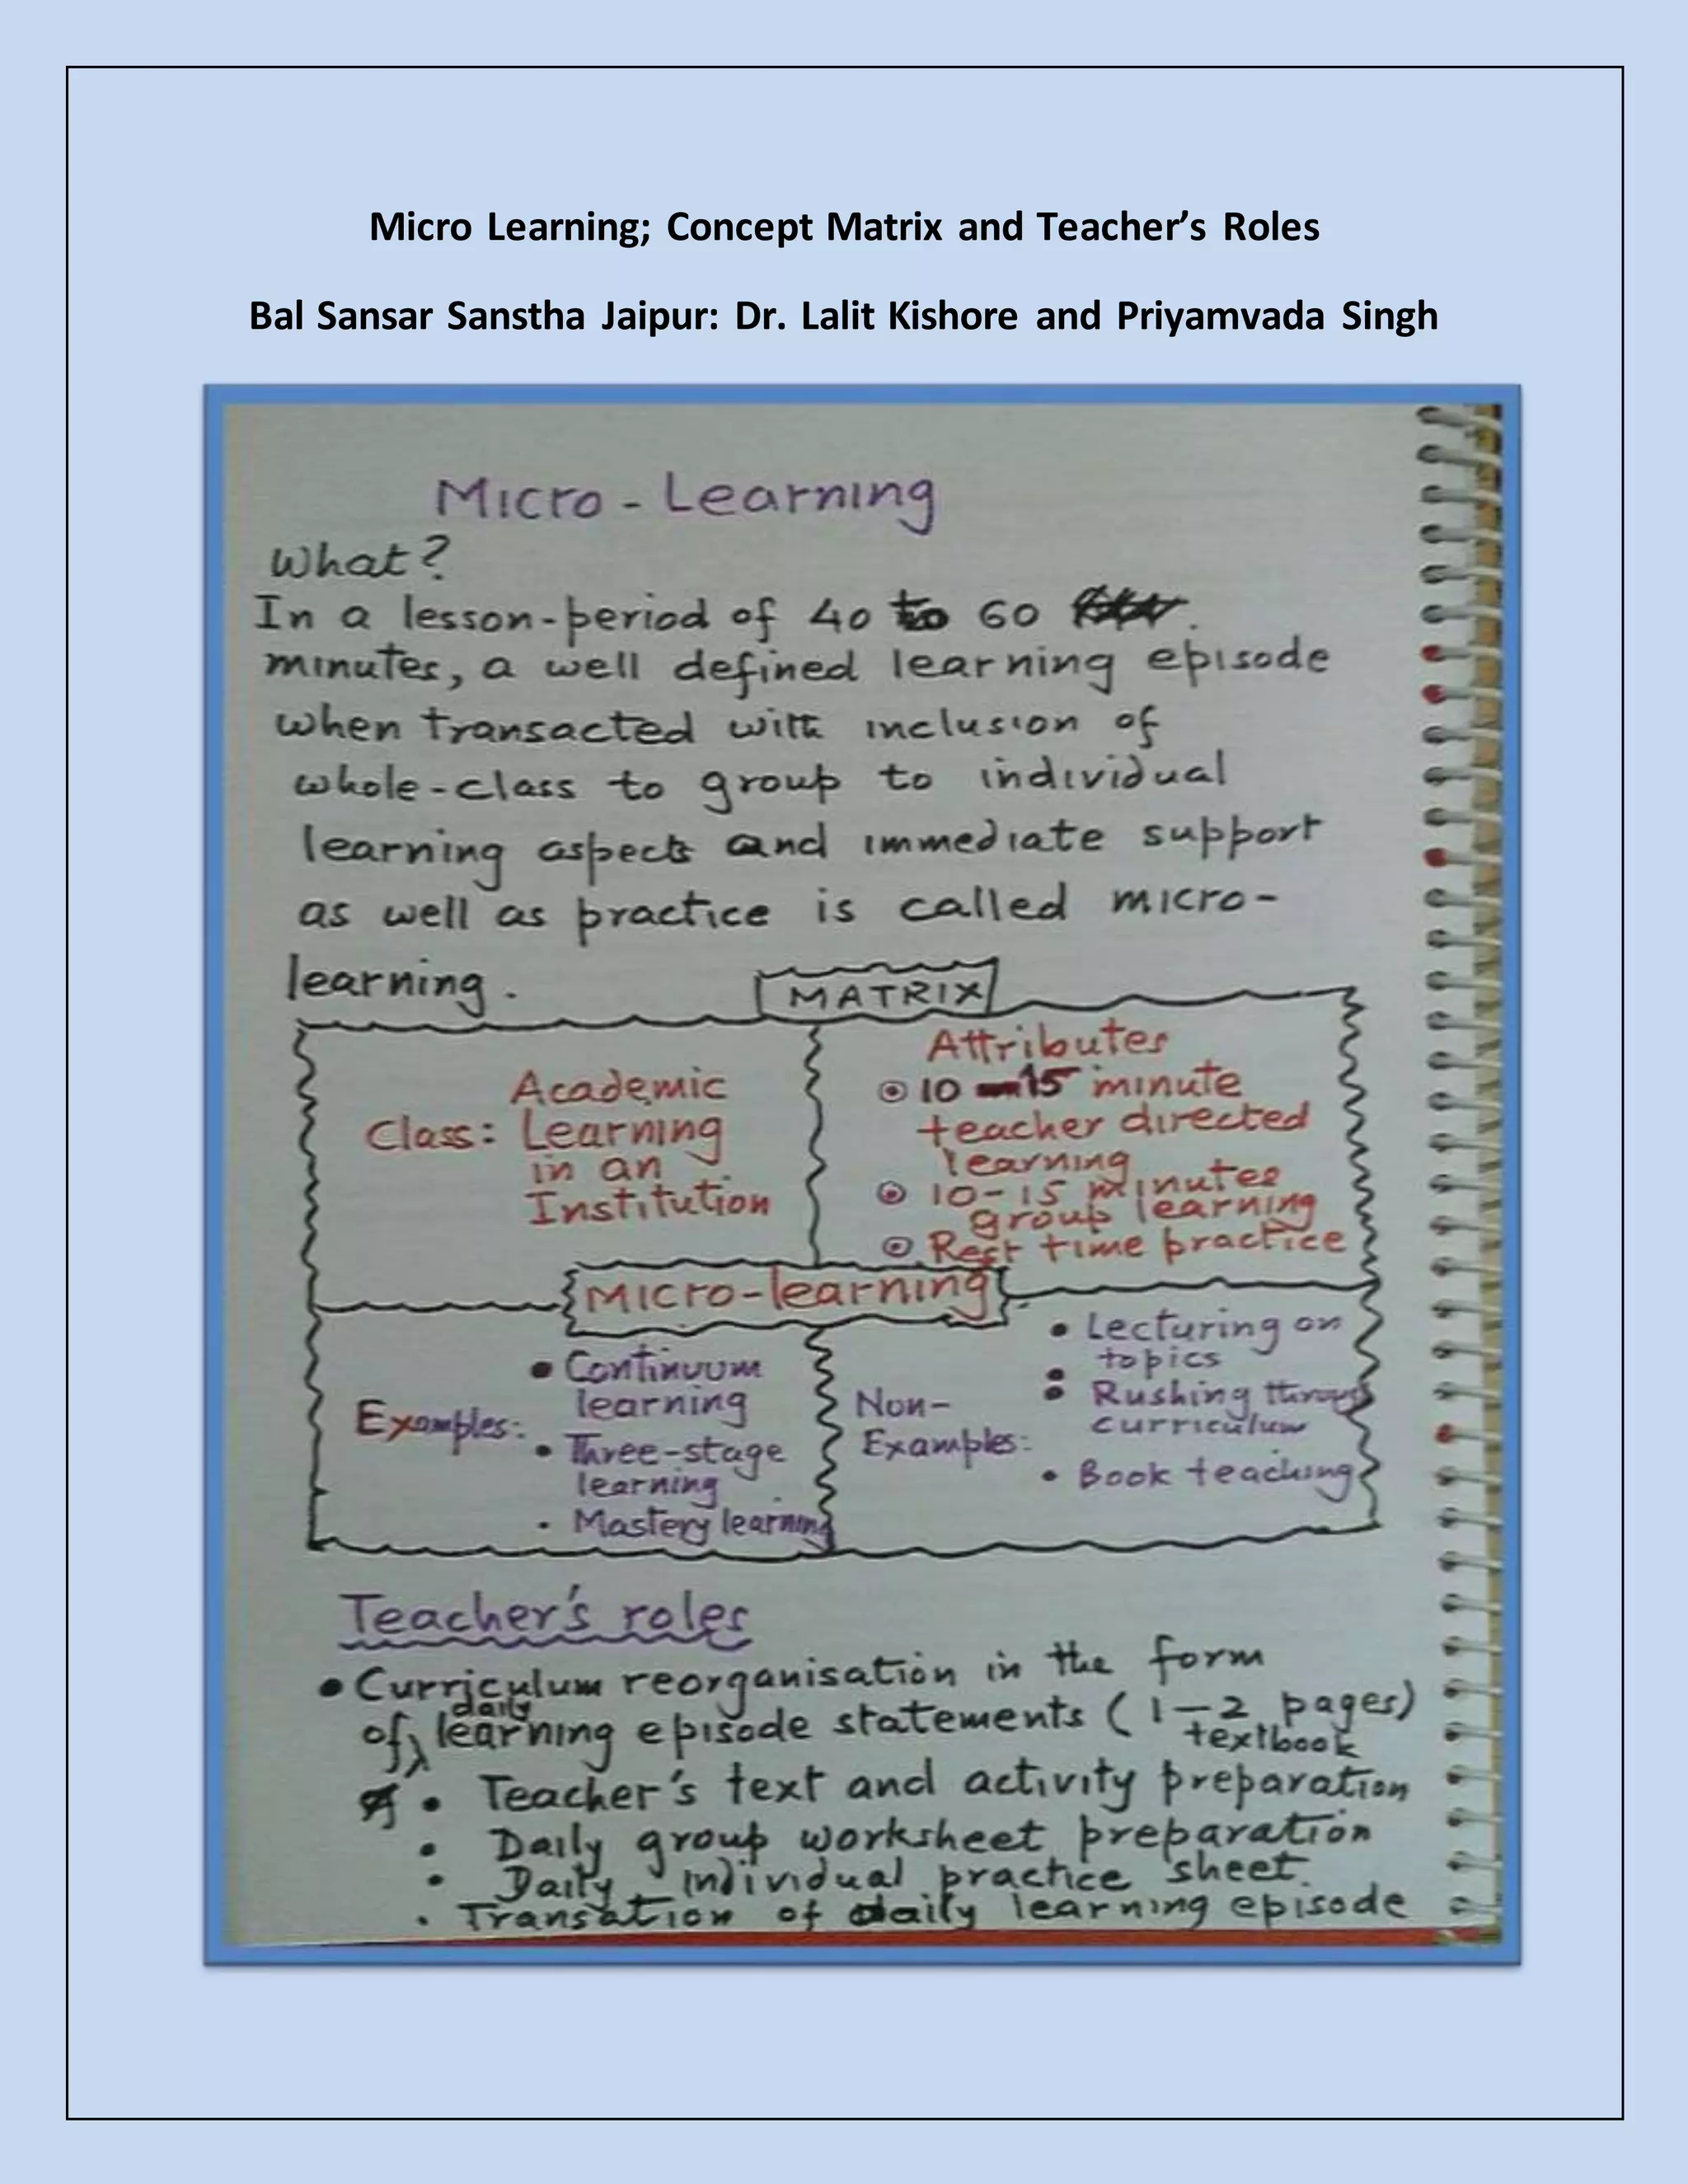 Micro Learning; Concept Matrix and Teacher’s Roles
Bal Sansar Sanstha Jaipur: Dr. Lalit Kishore and Priyamvada Singh
Micro - Learning
What?
In a lesson-period of 40 to 60
minutes, a well defined learning episode
when transacted with inclusion of
whole-class to group to individual
learning aspects and immediate support
as well as practice is called micro-
learning.
MATRIX
Academic
Class: Learning
in an
Institution
Attributes
10 - 15 minute
teacher directed
learning
10-15 minutes
group learning
Rest time practice
Micro-learning
Examples:
• Continuum
learning
• Three-stage
learning
• Mastery learning
Non-
Examples:
• Lecturing on
topics
• Rushing through
curriculum
• Book teaching
Teacher's roles
• Curriculum reorganisation in the form
of daily learning episode statements (1-2 pages)
textbook
• Teacher's text and activity preparation
• Daily group worksheet preparation
• Daily individual practice sheet.
• Transation of daily learning episode